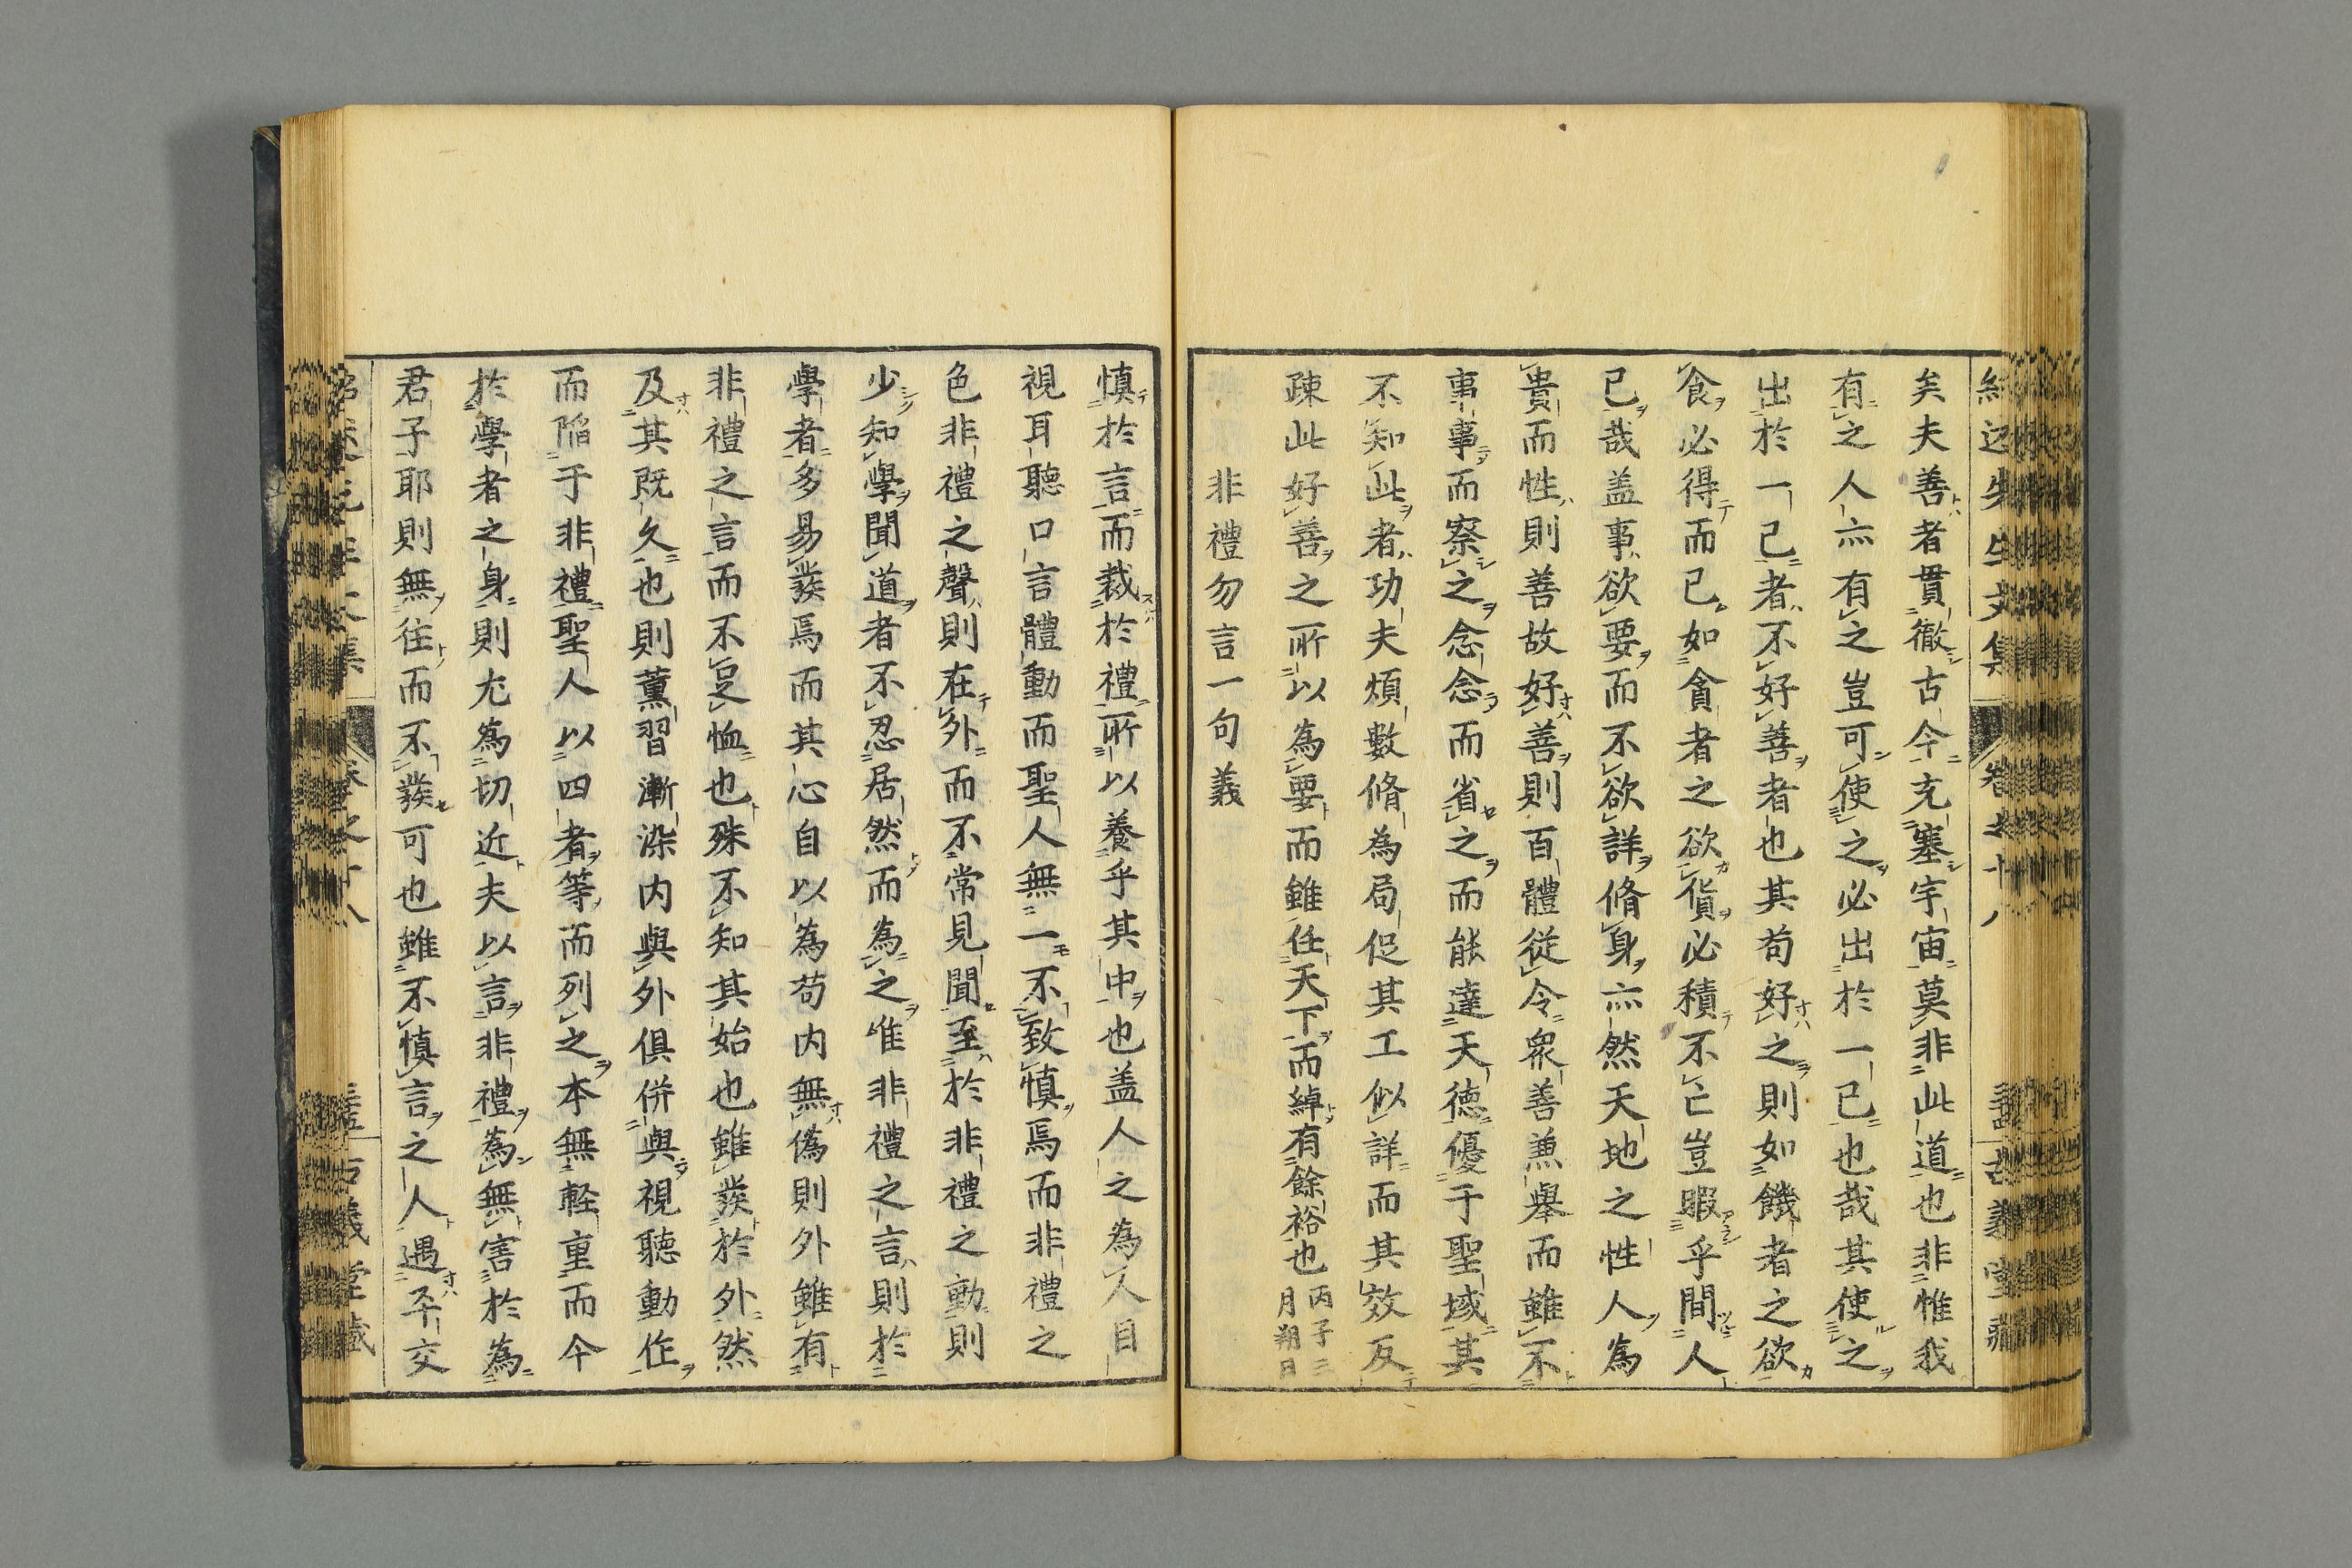 紹述先生文集 卷之十八 古義堂藏
矣夫善者貫徹古今充塞宇宙莫非此道也非惟我
有之人亦有之豈可使之必出於一己也哉其使之
出於一己者不好善者也其苟好之則如饑者之欲
食必得而已如貪者之欲貨必積不亡豈暇乎間人
已哉盖事欲要而不欲詳脩身亦然天地之性人為
貴而性則善故好善則百體從令衆善兼舉而雖不
事事而察之念念而省之而能達天德優于聖域其
不知此者功夫煩數脩為局促其工似詳而其效反
疎此好善之所以為要而雖任天下而綽有餘裕也 丙子三
月朔日
非禮勿言一句義
慎於言而裁於禮所以養乎其中也盖人之為人目
視耳聽口言體動而聖人無一不致慎焉而非禮之
色非禮之聲則在外而不常見聞至於非禮之動則
少知學聞道者不忍居然而為之唯非禮之言則於
學者多易發焉而其心自以為苟内無偽則外雖有
非禮之言而不足恤也殊不知其始也雖發於外然
及其既久也則薰習漸染内與外俱併與視聽動作
而陷于非禮聖人以四者等而列之本無軽重而今
於學者之身則尤為切近夫以言非禮為無害於為
君子耶則無往而不發可也雖不慎言之人遇卒交
紹述先生文集 卷之十八 古義堂藏